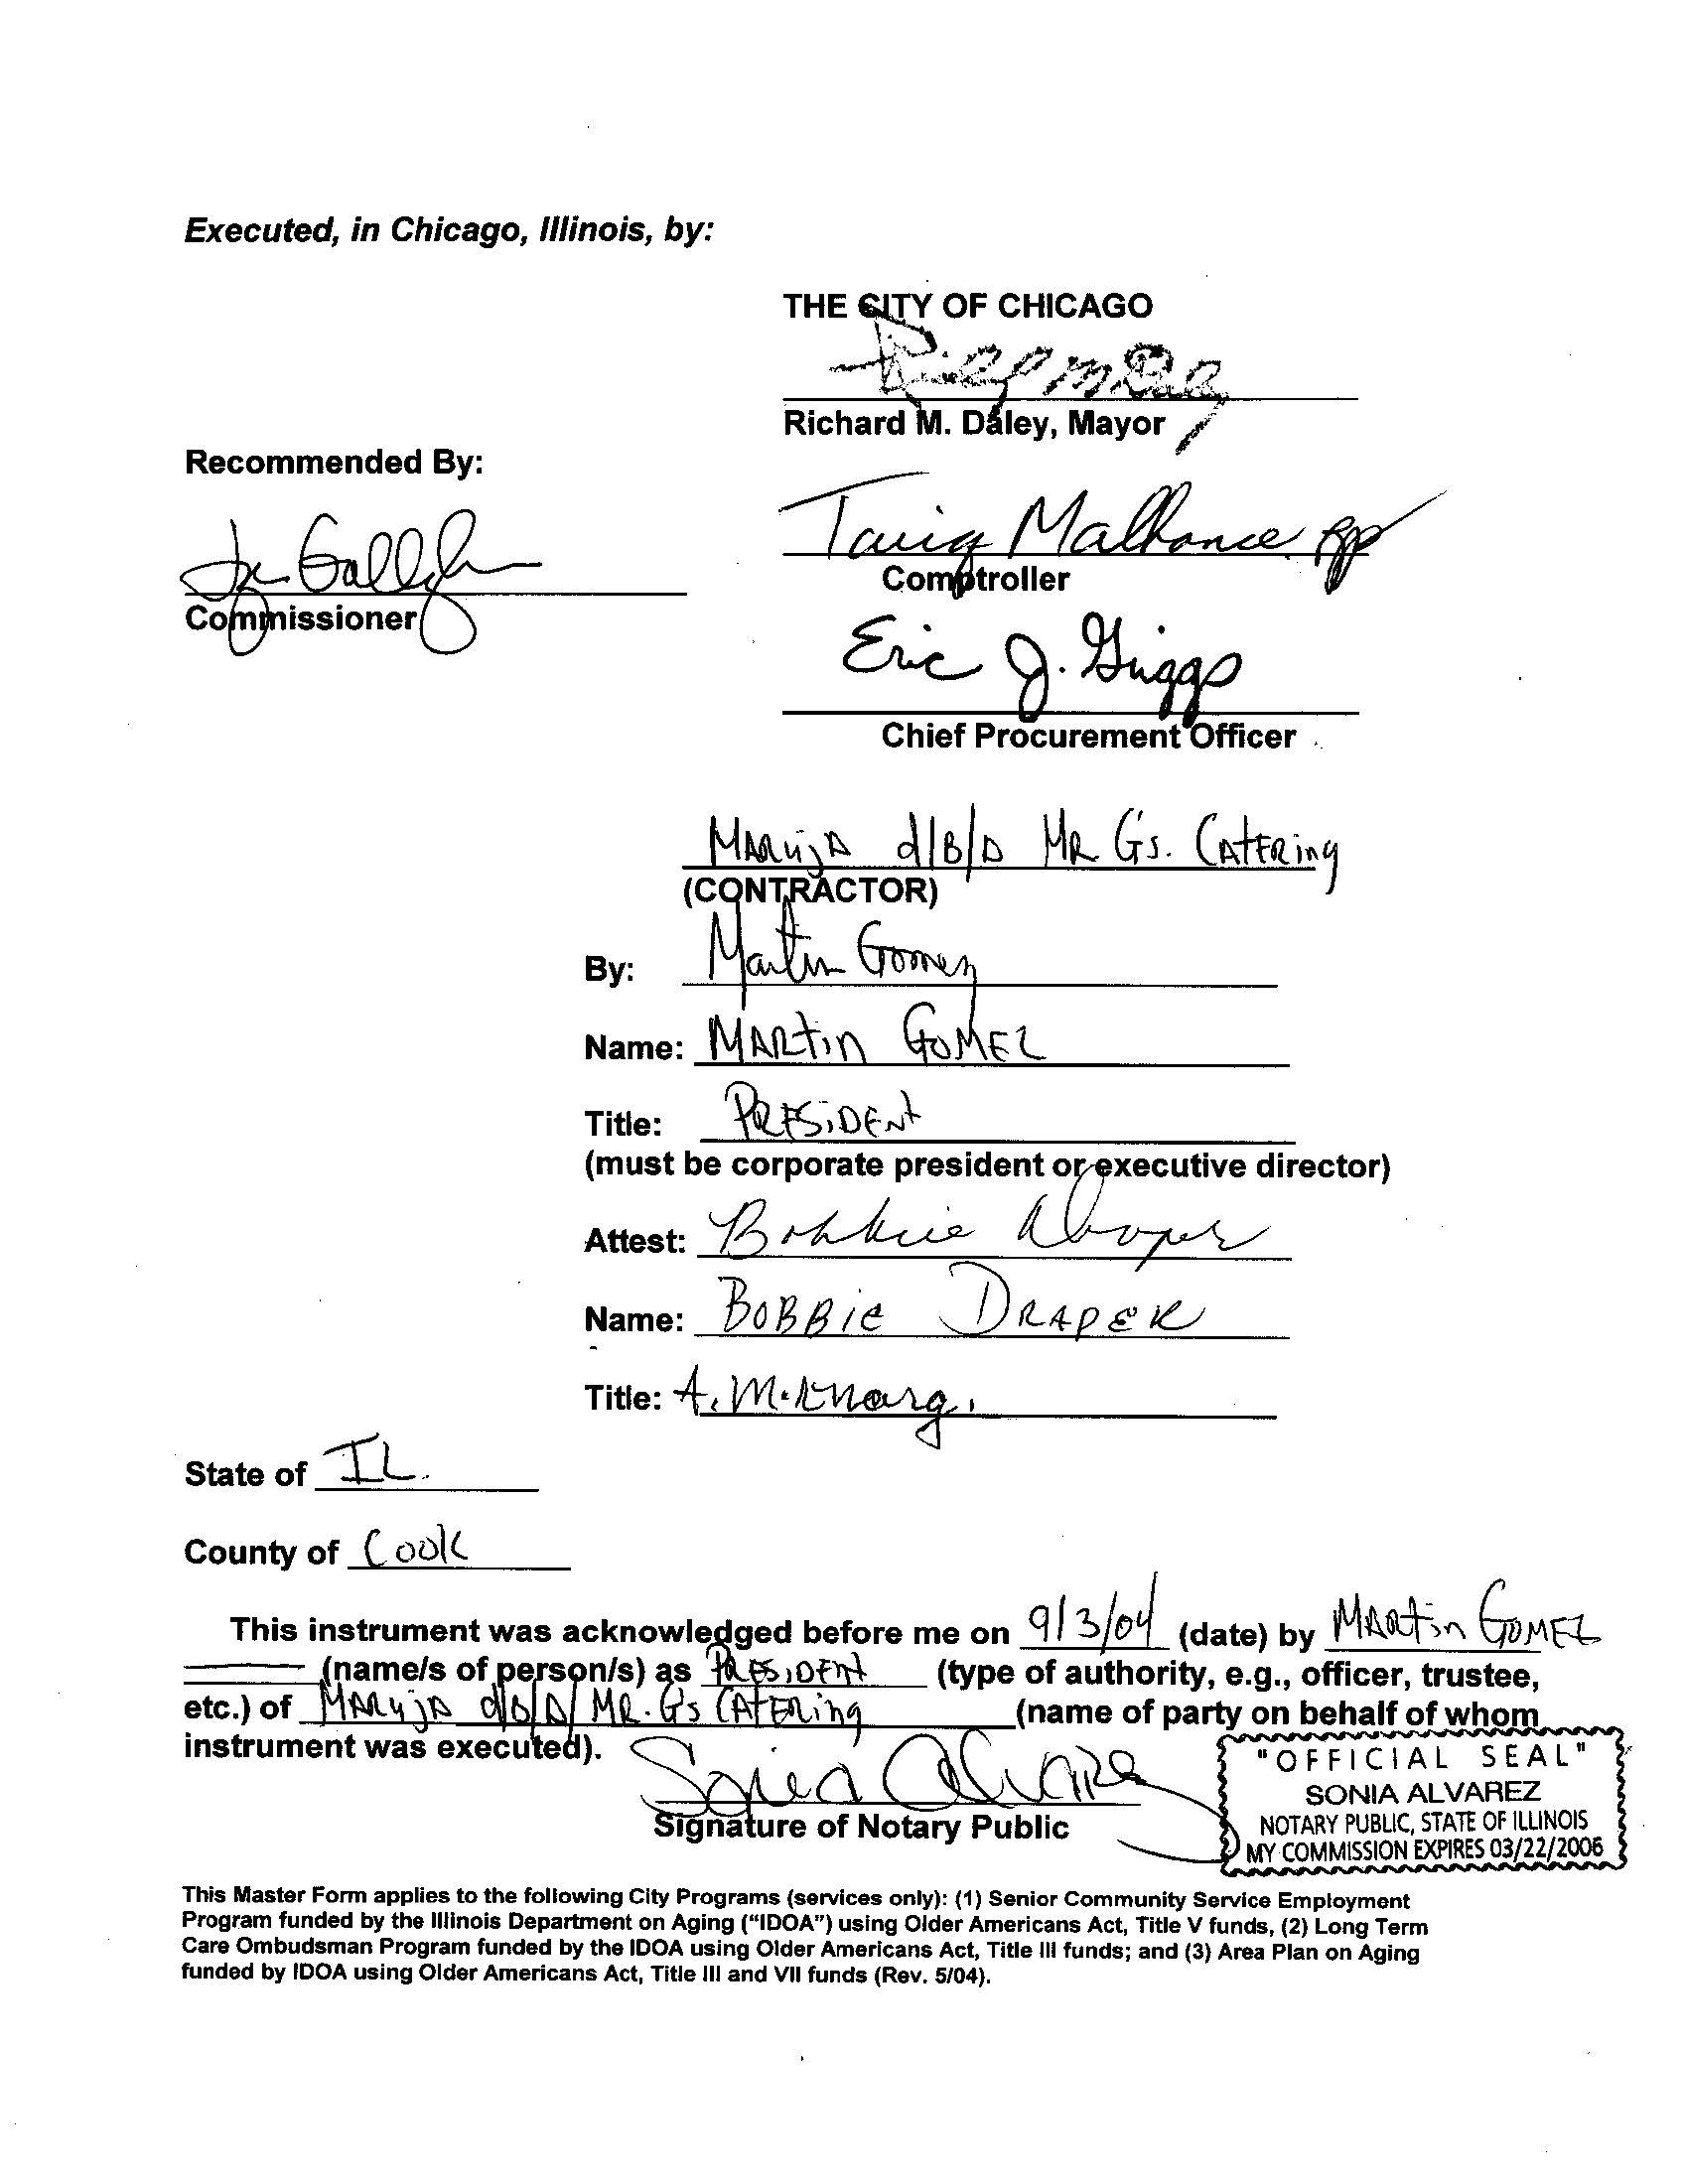 Executed, in Chicago, Illinois, by:
THE CITY OF CHICAGO
Richard M. Daley, Mayor
Recommended By:
Tariq Malhance
Comptroller
Commissioner
Eric J. Griggs
Chief Procurement Officer
MARUJA d/B/A MR G's. CATERing
(CONTRACTOR)
By: Martin Gomez
Name: MARtin GOMEZ
Title: PRESiDENt
(must be corporate president or executive director)
Attest: Bobbie Draper
Name: BOBBIE DRAPER
Title: A.
State of IL.
County of Cook
This instrument was acknowledged before me on 9/3/04 (date) by MARtin GOMEZ
(name/s of person/s) as PRESIDENt (type of authority, e.g., officer, trustee,
etc.) of MARUJA d/B/A/ MR. G's CATERing (name of party on behalf of whom
instrument was executed).
Sonia Alvarez
Signature of Notary Public
"OFFICIAL SEAL"
SONIA ALVAREZ
NOTARY PUBLIC, STATE OF ILLINOIS
MY COMMISSION EXPIRES 03/22/2006
This Master Form applies to the following City Programs (services only): (1) Senior Community Service Employment
Program funded by the Illinois Department on Aging ("IDOA") using Older Americans Act, Title V funds, (2) Long Term
Care Ombudsman Program funded by the IDOA using Older Americans Act, Title III funds; and (3) Area Plan on Aging
funded by IDOA using Older Americans Act, Title III and VII funds (Rev. 5/04).